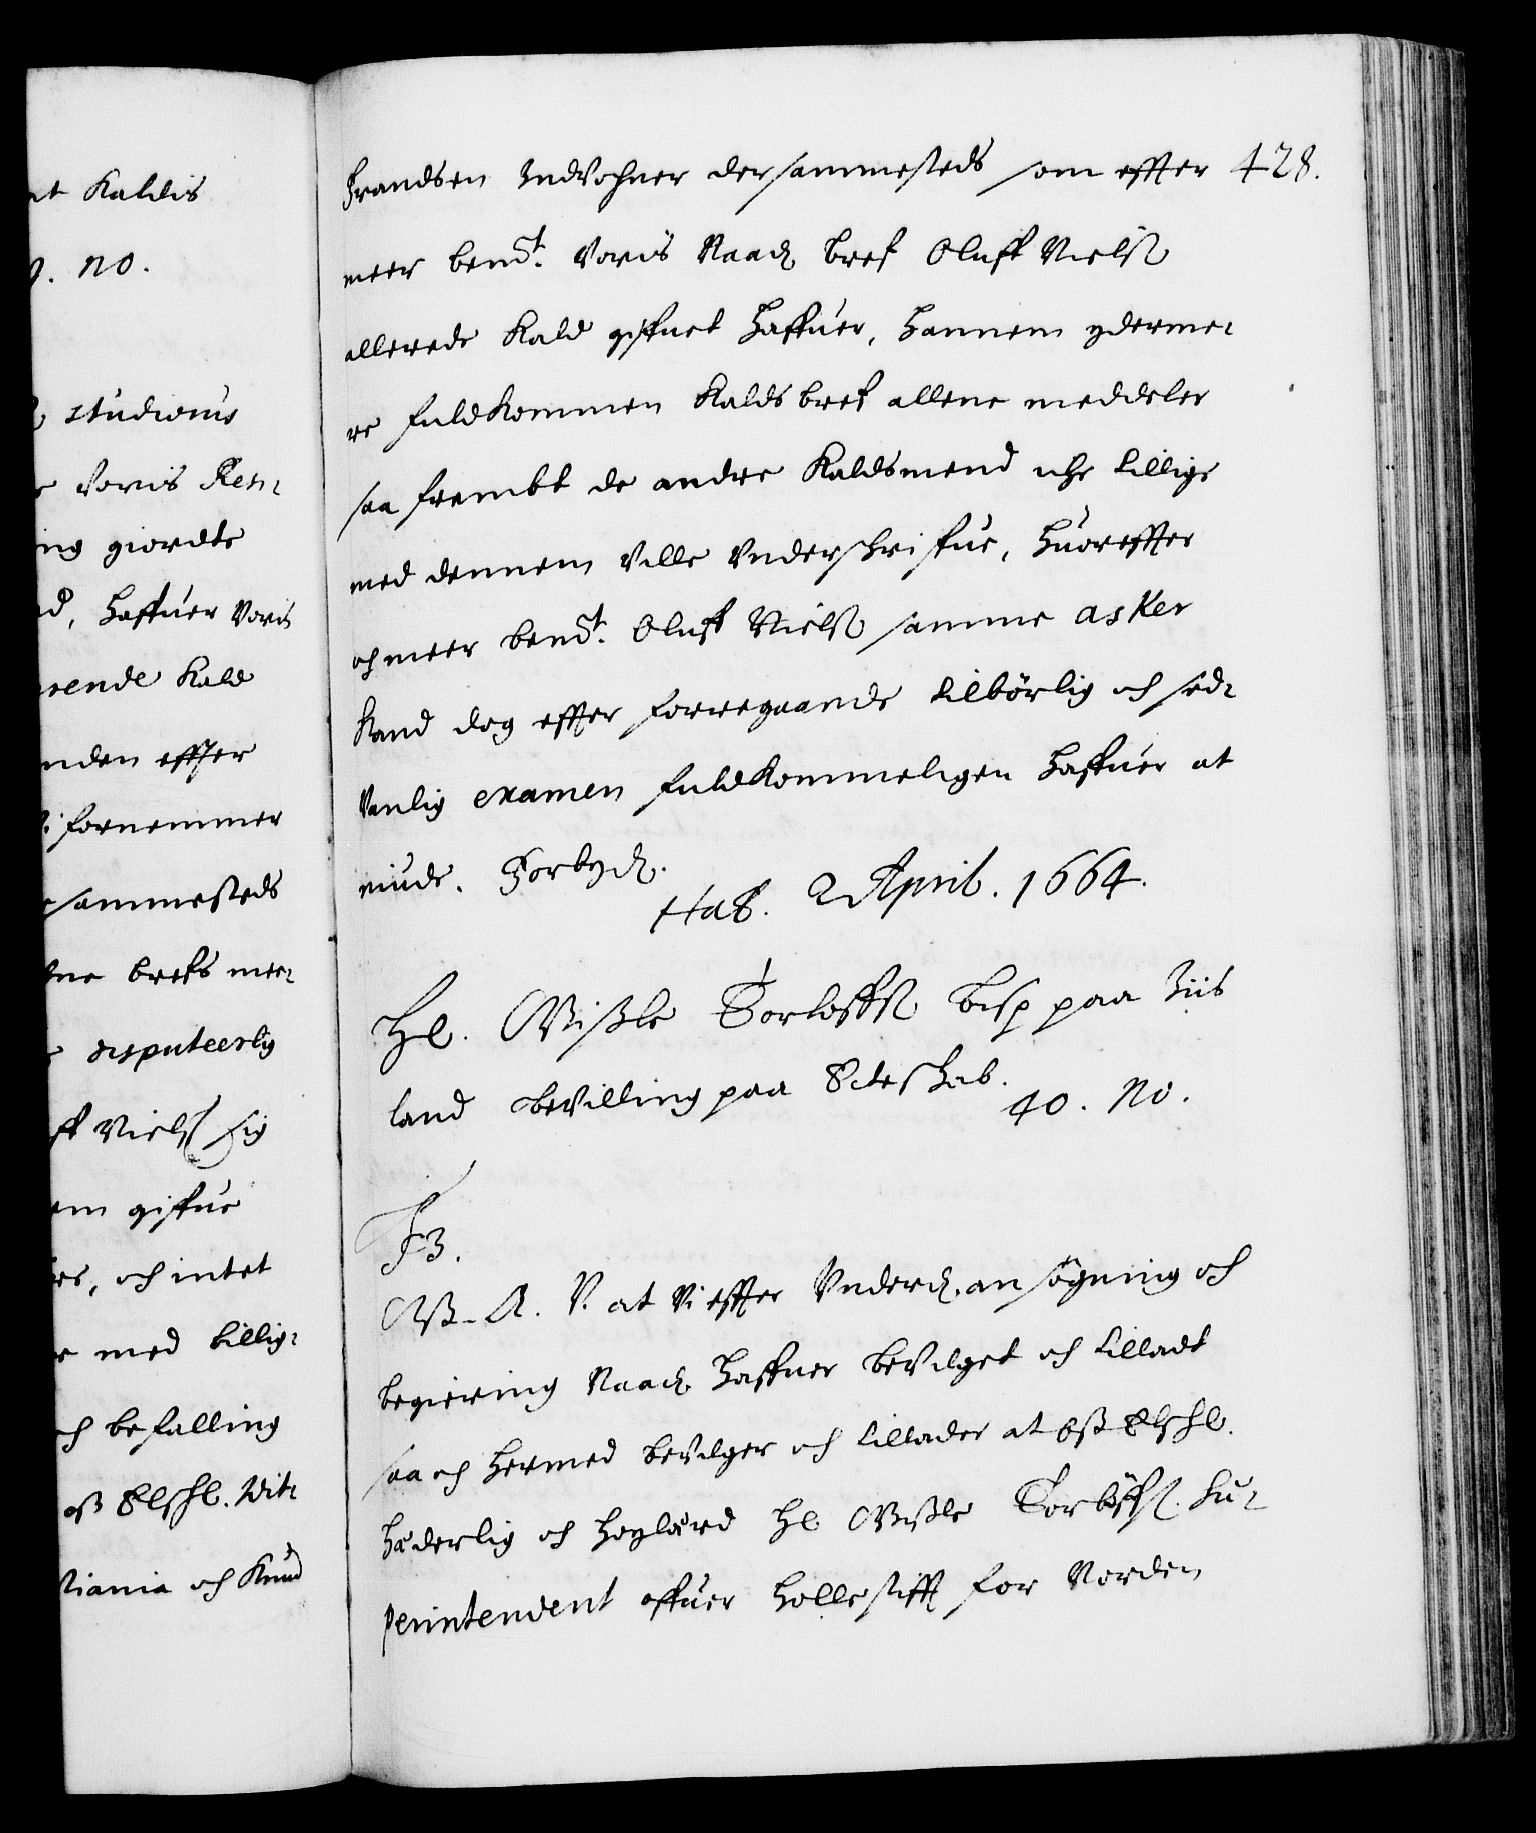 nt Kaldis
9. no.
studiosus
Voris Ren-
ing giordte
ad, haffuer Voris
rende Kald
nden effter
fornemmer
sammesteds
brefs mee-
disputeerlig
ff Nielsß sig
em giffue
, och intet
med billig-
ch befalling
oß Elschl. Wit-
tiania och Knud
Frandsen Indvohner dersammesteds som effter 428.
meer bemt. Voris Naadß bref Oluff Nielsß
allerede Kald giffuet haffuer, hannem yderme-
re fuldkommen Kalds bref allene meddeler
saa frembt de andre Kaldsmend iche tillige
med dennem ville Underschriffue, huoreffter
och meer bemt. Oluff Nielsß samme asker
Kand dog effter forregaande tilbörlig och sed-
vanlig examen fuldkommeligen haffuer at
niude. Forbydß.
Haf. 2 April. 1664.
Hl. Gißle Torloffsß bisp paa Iis
land bevilling paa Ecteskab.
40. No.
F3.
G. A. V. at Vi effter Underdß. ansögning och
begiering Naadß haffuer bevilget och tilladt
saa och hermed bevilger och tillader at oß Elschl.
hæderlig och höylærd Hl Gißle Torlöffsß. Su-
perintendent offuer Hollestifft for Norden